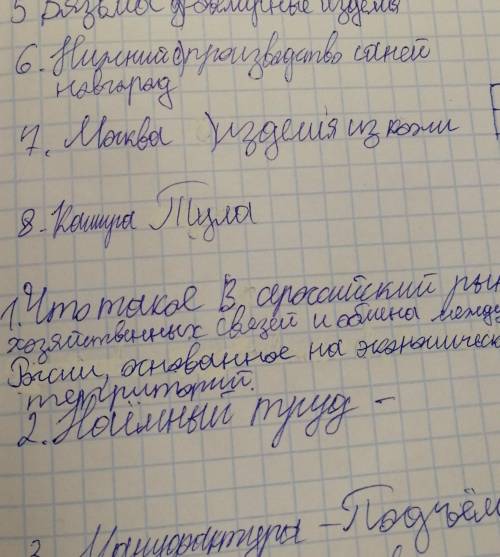 5 Вязьма ювелирные изделы
6. Нижний производство саней
новгорад
7. Москва ) изделия из кожи
8. Кашира Тула
1. Что такое Всероссийский рын
хозяйственных связей и обмена между
России, основанное на экономическ
территорий.
2. Наёмный труд -
3 Мануфактуры - Подъём